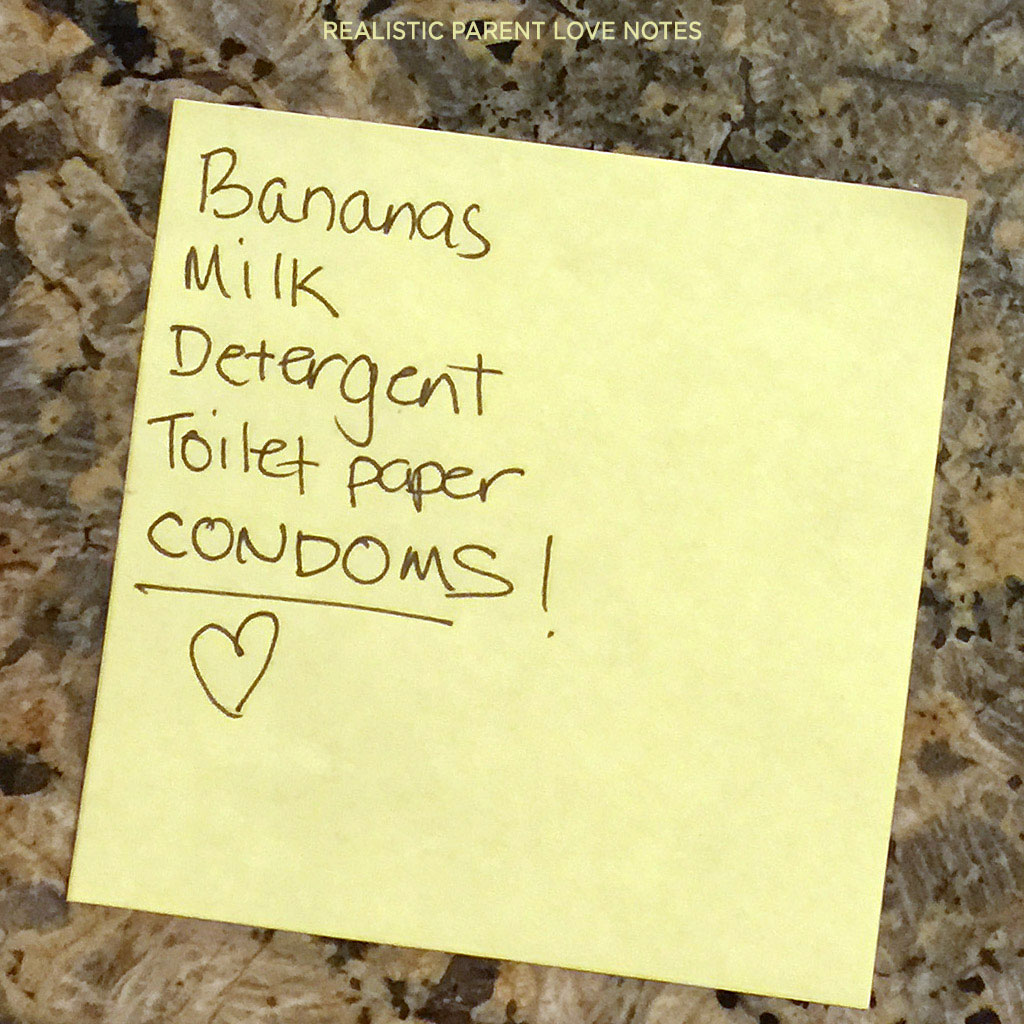 REALISTIC PARENT LOVE NOTES
Bananas
Milk
Detergent
Toilet paper
CONDOMS!